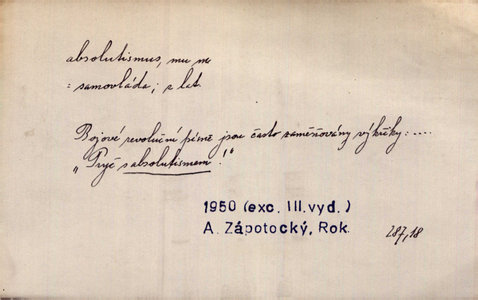 absolutismus, mu m
= samovláda; z lat.
Bojové revoluční písně jsou často zaměňovány výkřiky: ....
„Pryč s absolutismem!“
1950 (exc. III. vyd.)
A. Zápotocký, Rok.
287,18